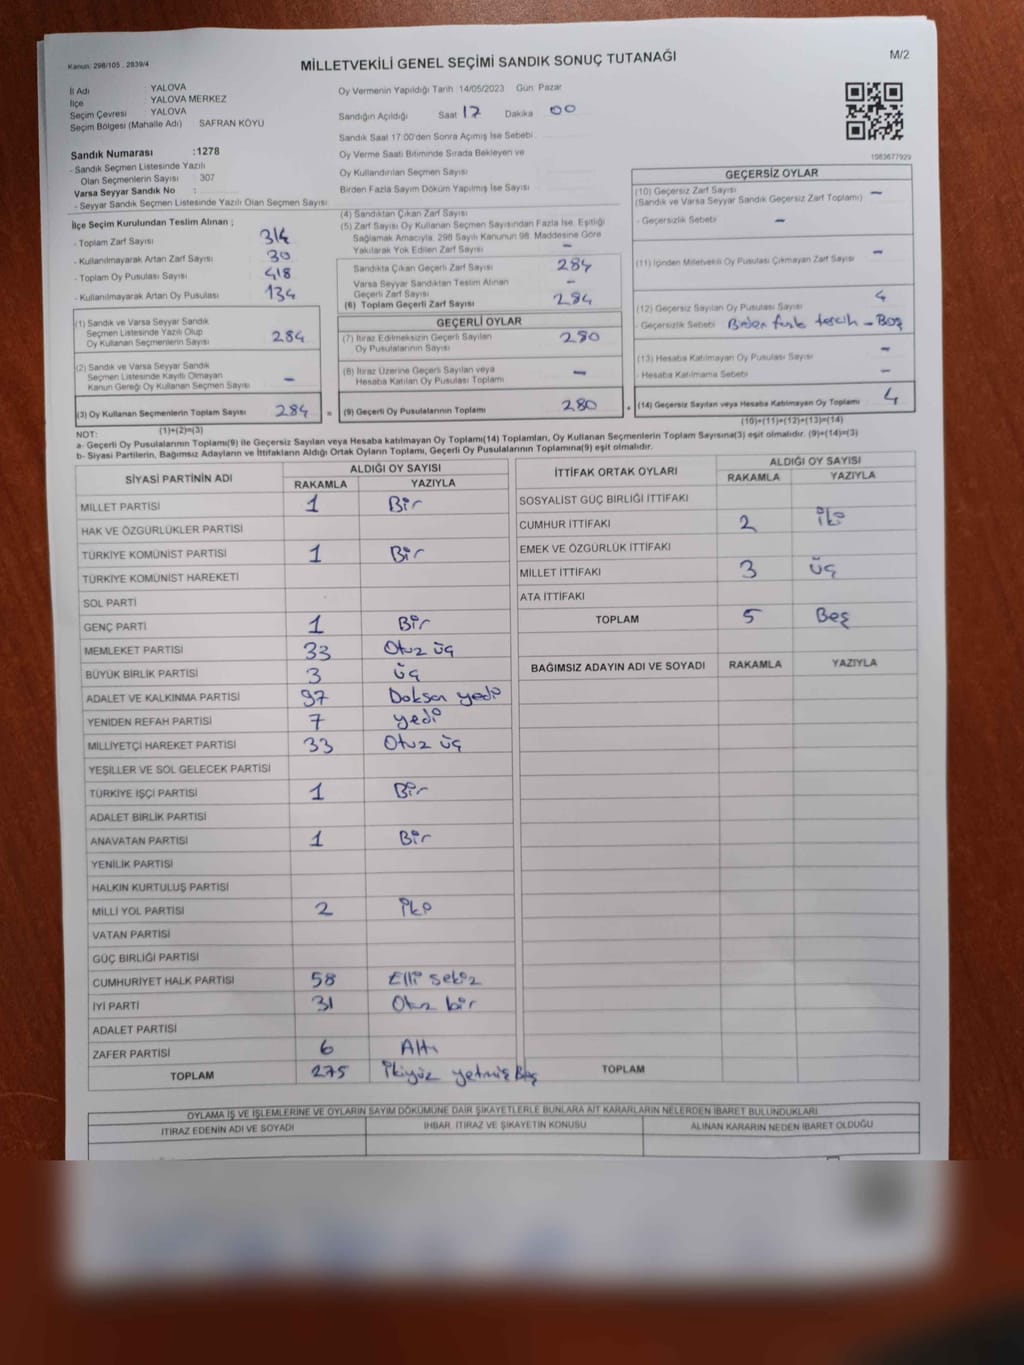 Kanun: 298/105 . 2839/4
MİLLETVEKİLİ GENEL SEÇİMİ SANDIK SONUÇ TUTANAĞI
M/2
İl Adı : YALOVA
İlçe : YALOVA MERKEZ
Seçim Çevresi : YALOVA
Seçim Bölgesi (Mahalle Adı) : SAFRAN KÖYÜ
Sandık Numarası :1278
- Sandık Seçmen Listesinde Yazılı
Olan Seçmenlerin Sayısı : 307
Varsa Seyyar Sandık No :
- Seyyar Sandık Seçmen Listesinde Yazılı Olan Seçmen Sayısı:
Oy Vermenin Yapıldığı Tarih 14/05/2023 Gün: Pazar
Sandığın Açıldığı Saat 17 Dakika 00
Sandık Saat 17.00'den Sonra Açımış İse Sebebi
Oy Verme Saati Bitiminde Sırada Bekleyen ve
Oy Kullandırılan Seçmen Sayısı
Birden Fazla Sayım Döküm Yapılmış İse Sayısı
1983677929
İlçe Seçim Kurulundan Teslim Alınan ;
- Toplam Zarf Sayısı 314
- Kullanılmayarak Artan Zarf Sayısı 30
- Toplam Oy Pusulası Sayısı 418
- Kullanılmayarak Artan Oy Pusulası 134
(1) Sandık ve Varsa Seyyar Sandık
Seçmen Listesinde Yazılı Olup
Oy Kullanan Seçmenlerin Sayısı 284
(2) Sandık ve Varsa Seyyar Sandık
Seçmen Listesinde Kayıtlı Olmayan
Kanun Gereği Oy Kullanan Seçmen Sayısı –
(3) Oy Kullanan Seçmenlerin Toplam Sayısı 284 =
(1)+(2)=(3)
(4) Sandıktan Çıkan Zarf Sayısı
(5) Zarf Sayısı Oy Kullanan Seçmen Sayısından Fazla İse, Eşitliği
Sağlamak Amacıyla, 298 Sayılı Kanunun 98. Maddesine Göre
Yakılarak Yok Edilen Zarf Sayısı –
Sandıkta Çıkan Geçerli Zarf Sayısı 284
Varsa Seyyar Sandıktan Teslim Alınan
Geçerli Zarf Sayısı –
(6) Toplam Geçerli Zarf Sayısı 284
GEÇERLİ OYLAR
(7) İtiraz Edilmeksizin Geçerli Sayılan
Oy Pusulalarının Sayısı 280
(8) İtiraz Üzerine Geçerli Sayılan veya
Hesaba Katılan Oy Pusulası Toplamı –
(9) Geçerli Oy Pusulalarının Toplamı 280 +
GEÇERSİZ OYLAR
(10) Geçersiz Zarf Sayısı –
(Sandık ve Varsa Seyyar Sandık Geçersiz Zarf Toplamı)
- Geçersizlik Sebebi –
(11) İçinden Milletvekili Oy Pusulası Çıkmayan Zarf Sayısı –
(12) Geçersiz Sayılan Oy Pusulası Sayısı 4
- Geçersizlik Sebebi Birden fazla tercih – Boş
(13) Hesaba Katılmayan Oy Pusulası Sayısı –
- Hesaba Katılmama Sebebi –
(14) Geçersiz Sayılan veya Hesaba Katılmayan Oy Toplamı 4
(10)+(11)+(12)+(13)=(14)
NOT:
a- Geçerli Oy Pusulalarının Toplamı(9) ile Geçersiz Sayılan veya Hesaba katılmayan Oy Toplamı(14) Toplamları, Oy Kullanan Seçmenlerin Toplam Sayısına(3) eşit olmalıdır. (9)+(14)=(3)
b- Siyasi Partilerin, Bağımsız Adayların ve İttifakların Aldığı Ortak Oyların Toplamı, Geçerli Oy Pusulalarının Toplamına(9) eşit olmalıdır.
SİYASİ PARTİNİN ADI ALDIĞI OY SAYISI
RAKAMLA YAZIYLA
MİLLET PARTİSİ 1 Bir
HAK VE ÖZGÜRLÜKLER PARTİSİ
TÜRKİYE KOMÜNİST PARTİSİ 1 Bir
TÜRKİYE KOMÜNİST HAREKETİ
SOL PARTİ
GENÇ PARTİ 1 Bir
MEMLEKET PARTİSİ 33 Otuz üç
BÜYÜK BİRLİK PARTİSİ 3 üç
ADALET VE KALKINMA PARTİSİ 97 Doksan yedi
YENİDEN REFAH PARTİSİ 7 yedi
MİLLİYETÇİ HAREKET PARTİSİ 33 Otuz üç
YEŞİLLER VE SOL GELECEK PARTİSİ
TÜRKİYE İŞÇİ PARTİSİ 1 Bir
ADALET BİRLİK PARTİSİ
ANAVATAN PARTİSİ 1 Bir
YENİLİK PARTİSİ
HALKIN KURTULUŞ PARTİSİ
MİLLİ YOL PARTİSİ 2 iki
VATAN PARTİSİ
GÜÇ BİRLİĞİ PARTİSİ
CUMHURİYET HALK PARTİSİ 58 Elli sekiz
İYİ PARTİ 31 Otuz bir
ADALET PARTİSİ
ZAFER PARTİSİ 6 Altı
TOPLAM 275 İkiyüz yetmiş Beş
İTTİFAK ORTAK OYLARI ALDIĞI OY SAYISI
RAKAMLA YAZIYLA
SOSYALİST GÜÇ BİRLİĞİ İTTİFAKI
CUMHUR İTTİFAKI 2 iki
EMEK VE ÖZGÜRLÜK İTTİFAKI
MİLLET İTTİFAKI 3 üç
ATA İTTİFAKI
TOPLAM 5 Beş
BAĞIMSIZ ADAYIN ADI VE SOYADI RAKAMLA YAZIYLA
TOPLAM
OYLAMA İŞ VE İŞLEMLERİNE VE OYLARIN SAYIM DÖKÜMÜNE DAİR ŞİKAYETLERLE BUNLARA AİT KARARLARIN NELERDEN İBARET BULUNDUKLARI
İTİRAZ EDENİN ADI VE SOYADI İHBAR, İTİRAZ VE ŞİKAYETİN KONUSU ALINAN KARARIN NEDEN İBARET OLDUĞU